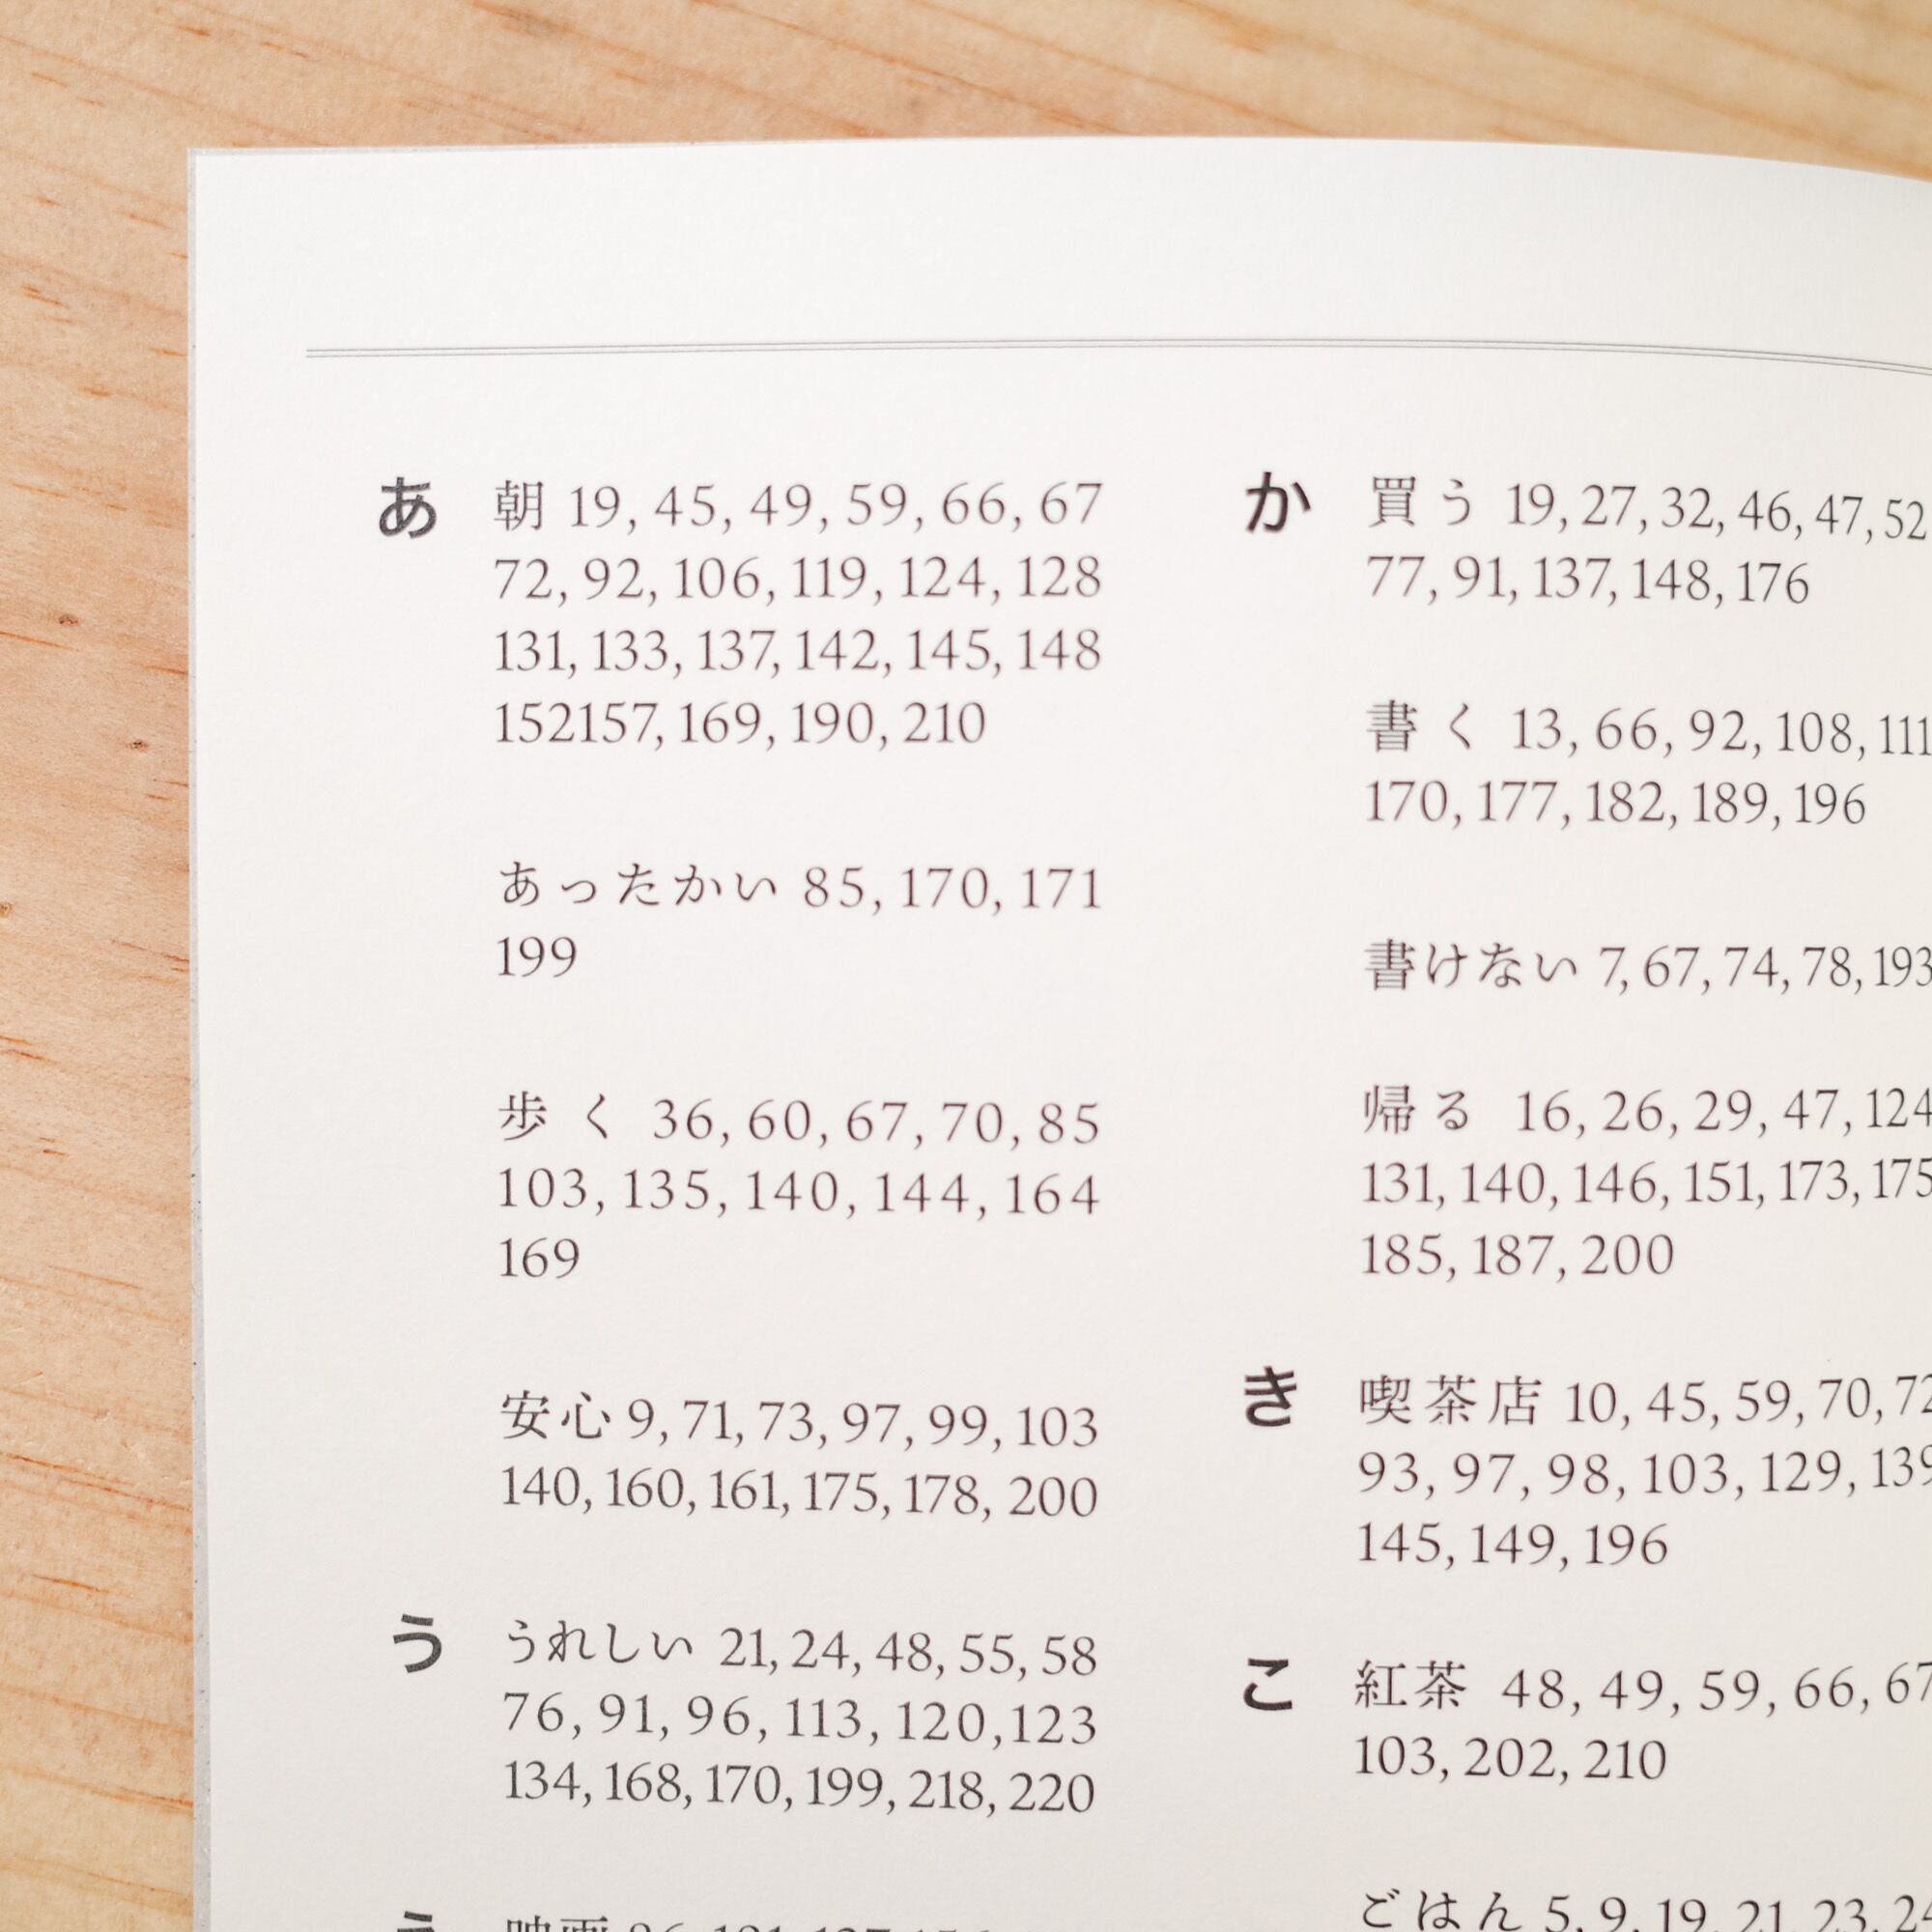 あ 朝 19, 45, 49, 59, 66, 67
72, 92, 106, 119, 124, 128
131, 133, 137, 142, 145, 148
152157, 169, 190, 210
あったかい 85, 170, 171
199
歩く 36, 60, 67, 70, 85
103, 135, 140, 144, 164
169
安心 9, 71, 73, 97, 99, 103
140, 160, 161, 175, 178, 200
う うれしい 21, 24, 48, 55, 58
76, 91, 96, 113, 120,123
134, 168, 170, 199, 218, 220
映画
か 買う 19, 27, 32, 46, 47, 52
77, 91, 137, 148, 176
書く 13, 66, 92, 108, 111
170, 177, 182, 189, 196
書けない 7, 67, 74, 78, 193
帰る 16, 26, 29, 47, 124
131, 140, 146, 151, 173, 175
185, 187, 200
き 喫茶店 10, 45, 59, 70, 72
93, 97, 98, 103, 129, 139
145, 149, 196
こ 紅茶 48, 49, 59, 66, 67
103, 202, 210
ごはん 5, 9, 19, 21, 23,